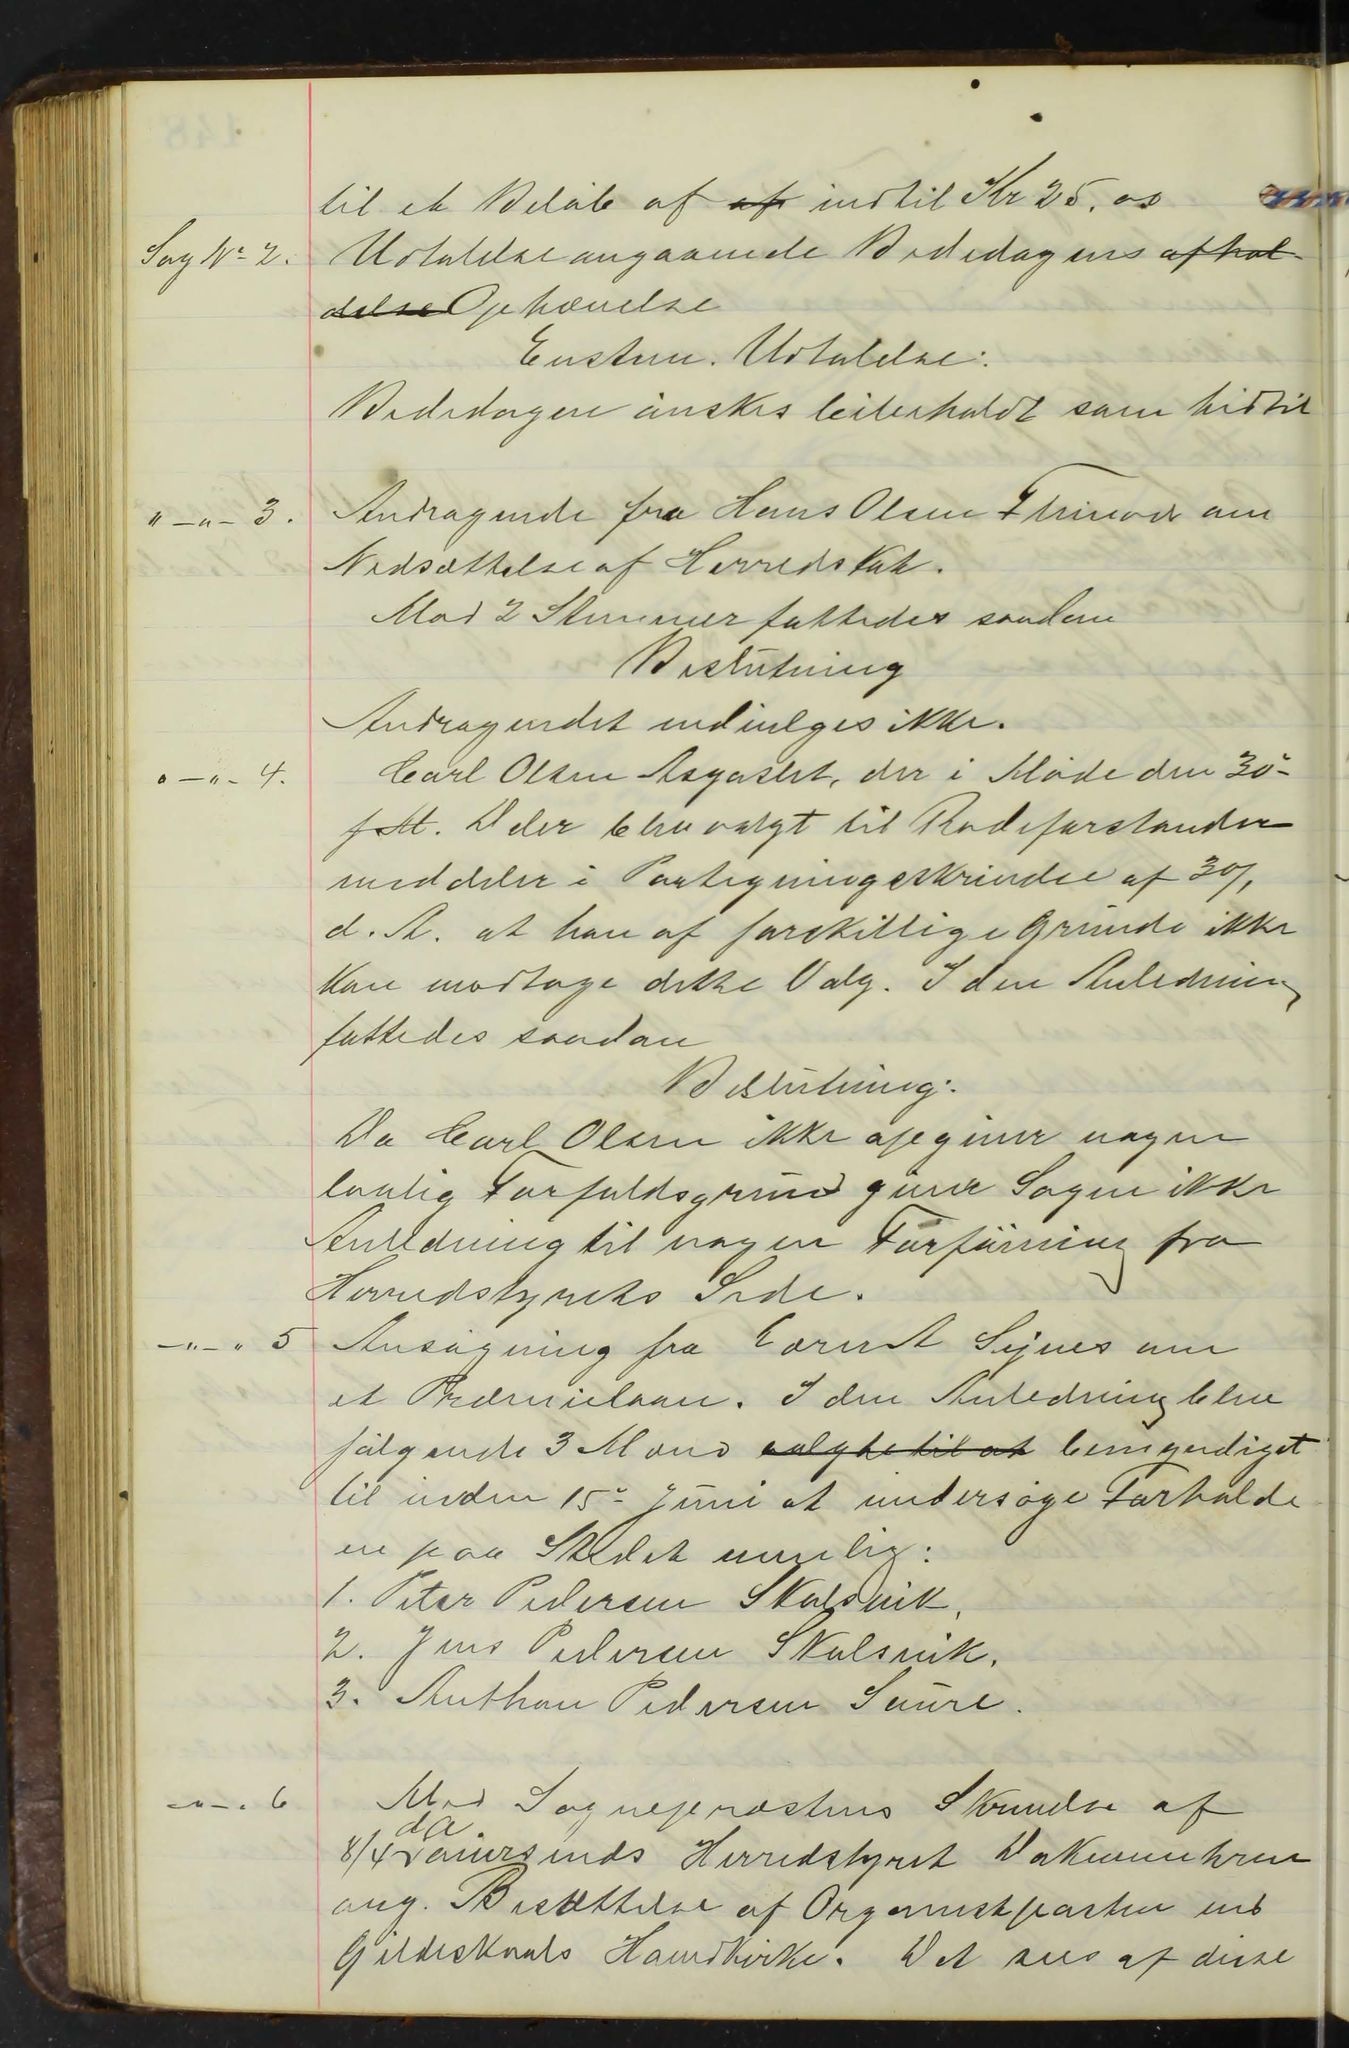 til et Beløb af af indtil Kr 25.00
Sag No 2. Udtalelse angaaende Bededagens afhol-
delse Ophævelse
Enstem. Udtalelse:
Bededagen ønskes beibeholdt som hidtil
"-"- 3. Andragende fra Hans Olsen om
Nedsættelse af Herredskat.
Mod 2 Stemmer fattedes saadan
Beslutning
Andragendet indvilges ikke.
"-"- 4. Carl Olsen der i Møde den 30-
f.M. blev valgt til Rodeforstander
meddeler i Skrivelse af 30/
d. A. at han af forskillige Grunde ikke
kan modtage dette Valg. I den Anledning
fattedes saadan
Beslutning:
Da Carl Olsen ikke opgiver nogen
lovlig Forfaldsgrund giver Sagen ikke
Anledning til nogen Forføining fra
Herredstyrets Side.
-"-" 5 Ansøgning fra om
et Præmielaan. I den Anledning blev
følgende 3 Mænd valgte til at bemyndiget
til inden 15- Juni at undersøge Forholde
ne paa Stedet nemlig:
1. Peter Pedersen Skolsvik.
2. Jens Pedersen Skolsvik.
3. Anthon Pedersen Saure.
-"-" 6 Med Sogneprestens Skrivelse af
8/4 d A oversends Herredstyret Dokumenterne
ang. Besættelse af Organistposten ved
Gildeskaals Hovedkirke. Det sees af disse